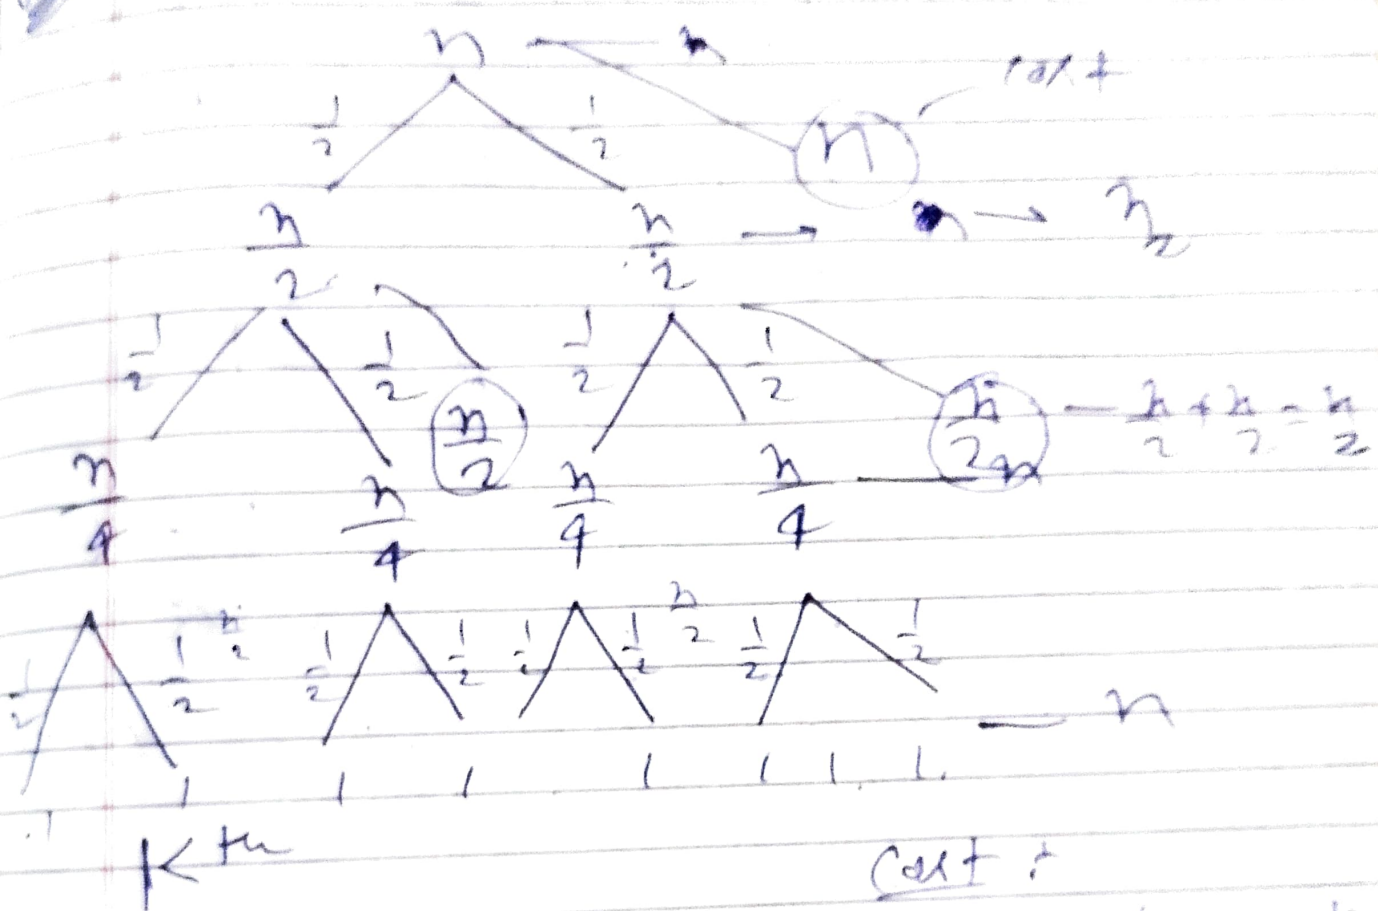 n — n
cost
1/2 1/2 n
n/2 n/2 → n → n/2
1/2 1/2 1/2 1/2
n/2 n/2 — n/2 + n/2 = n/2
n/4 n/4 n/4 n/4 — n
1/2 1/2 n/2 1/2 1/2 1/2 1/2 n/2 1/2 1/2
— n
1 1 1 1 1 1 1 1
Kth
Cost :